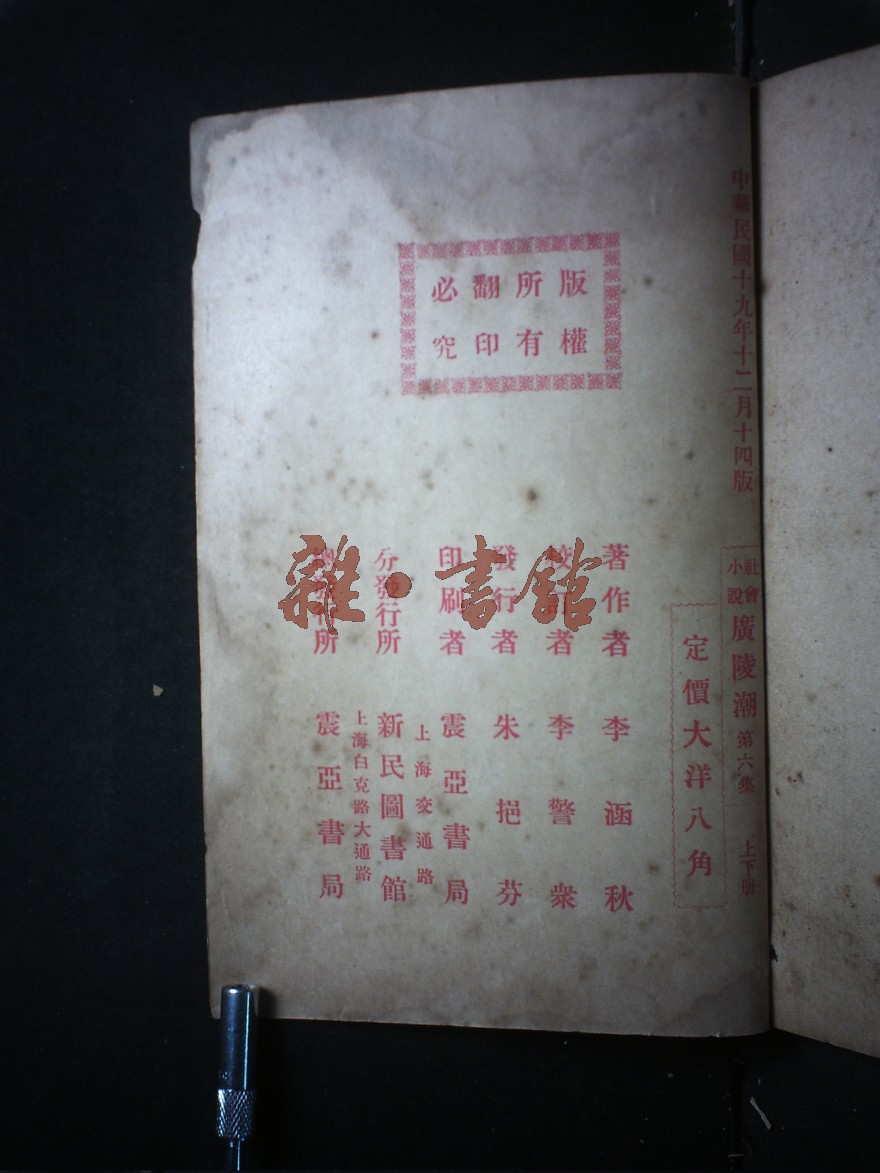 中華民國十九年十二月十四版
社會小說 廣陵潮 第六集 上下册
定價大洋八角
版權所有
翻印必究
著作者 李涵秋
校訂者 李警衆
發行者 朱挹芬
印刷者 震亞書局
上海交通路
分發行所 新民圖書館
上海白克路大通路
總發行所 震亞書局
雜·書館